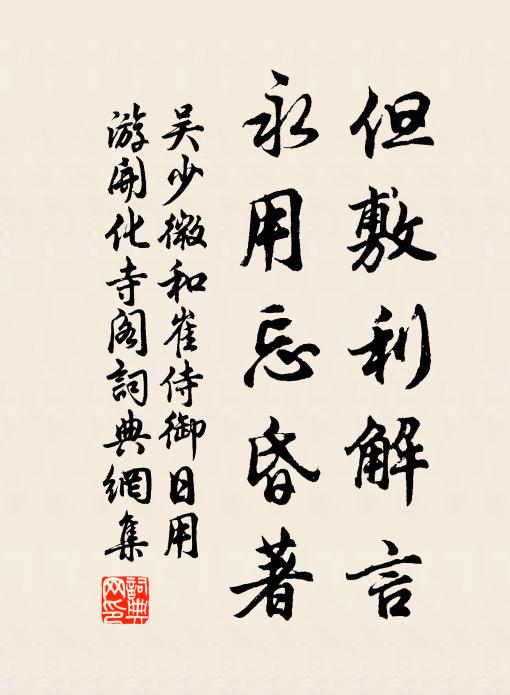 但敷利解言
永用忘昏著
吴少微和崔侍御日用
游開化寺閣詞典網集
詞典网印